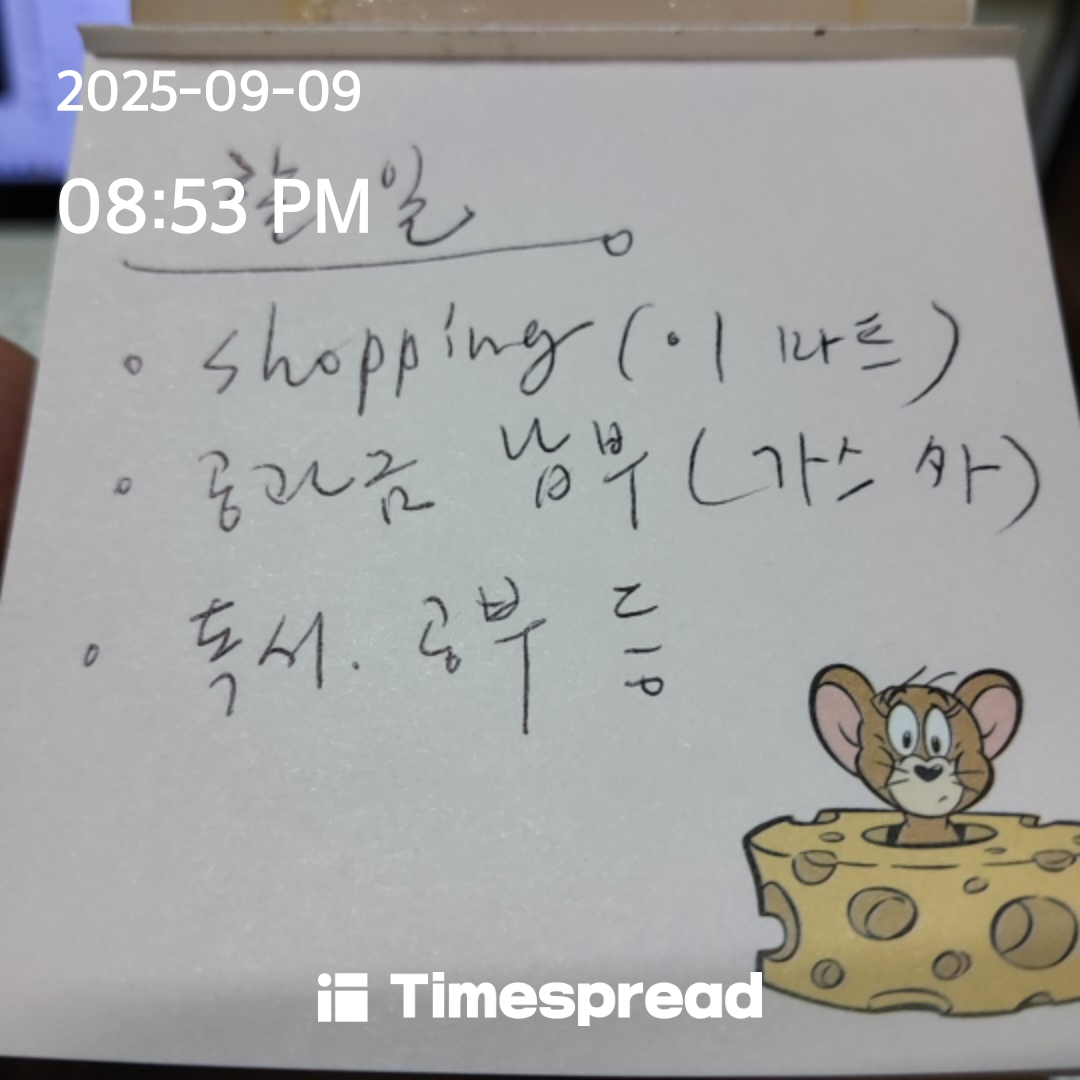 2025-09-09
08:53 PM
할 일
shopping (이 마트)
공과금 납부 (가스 外)
독서. 공부 등
Timespread